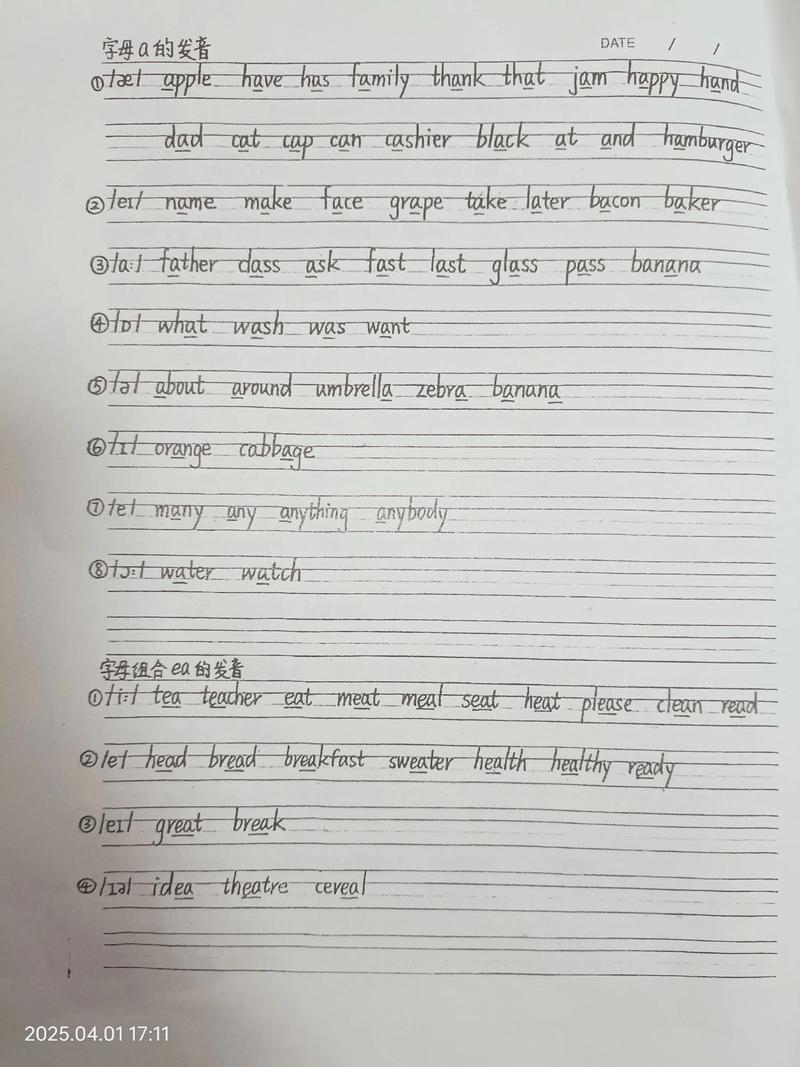 字母a的发音
DATE / /
①/æ/ apple have has family thank that jam happy hand
dad cat cap can cashier black at and hamburger
②/eɪ/ name make face grape take later bacon baker
③/ɑː/ father dass ask fast last glass pass banana
④/ɒ/ what wash was want
⑤/ə/ about around umbrella zebra banana
⑥/ɪ/ orange cabbage
⑦/e/ many any anything anybody
⑧/ɔː/ water watch
字母组合ea的发音
①/iː/ tea teacher eat meat meal seat heat please clean read
②/e/ head bread breakfast sweater health healthy ready
③/eɪ/ great break
④/ɪə/ idea theatre cereal
2025.04.01 17:11